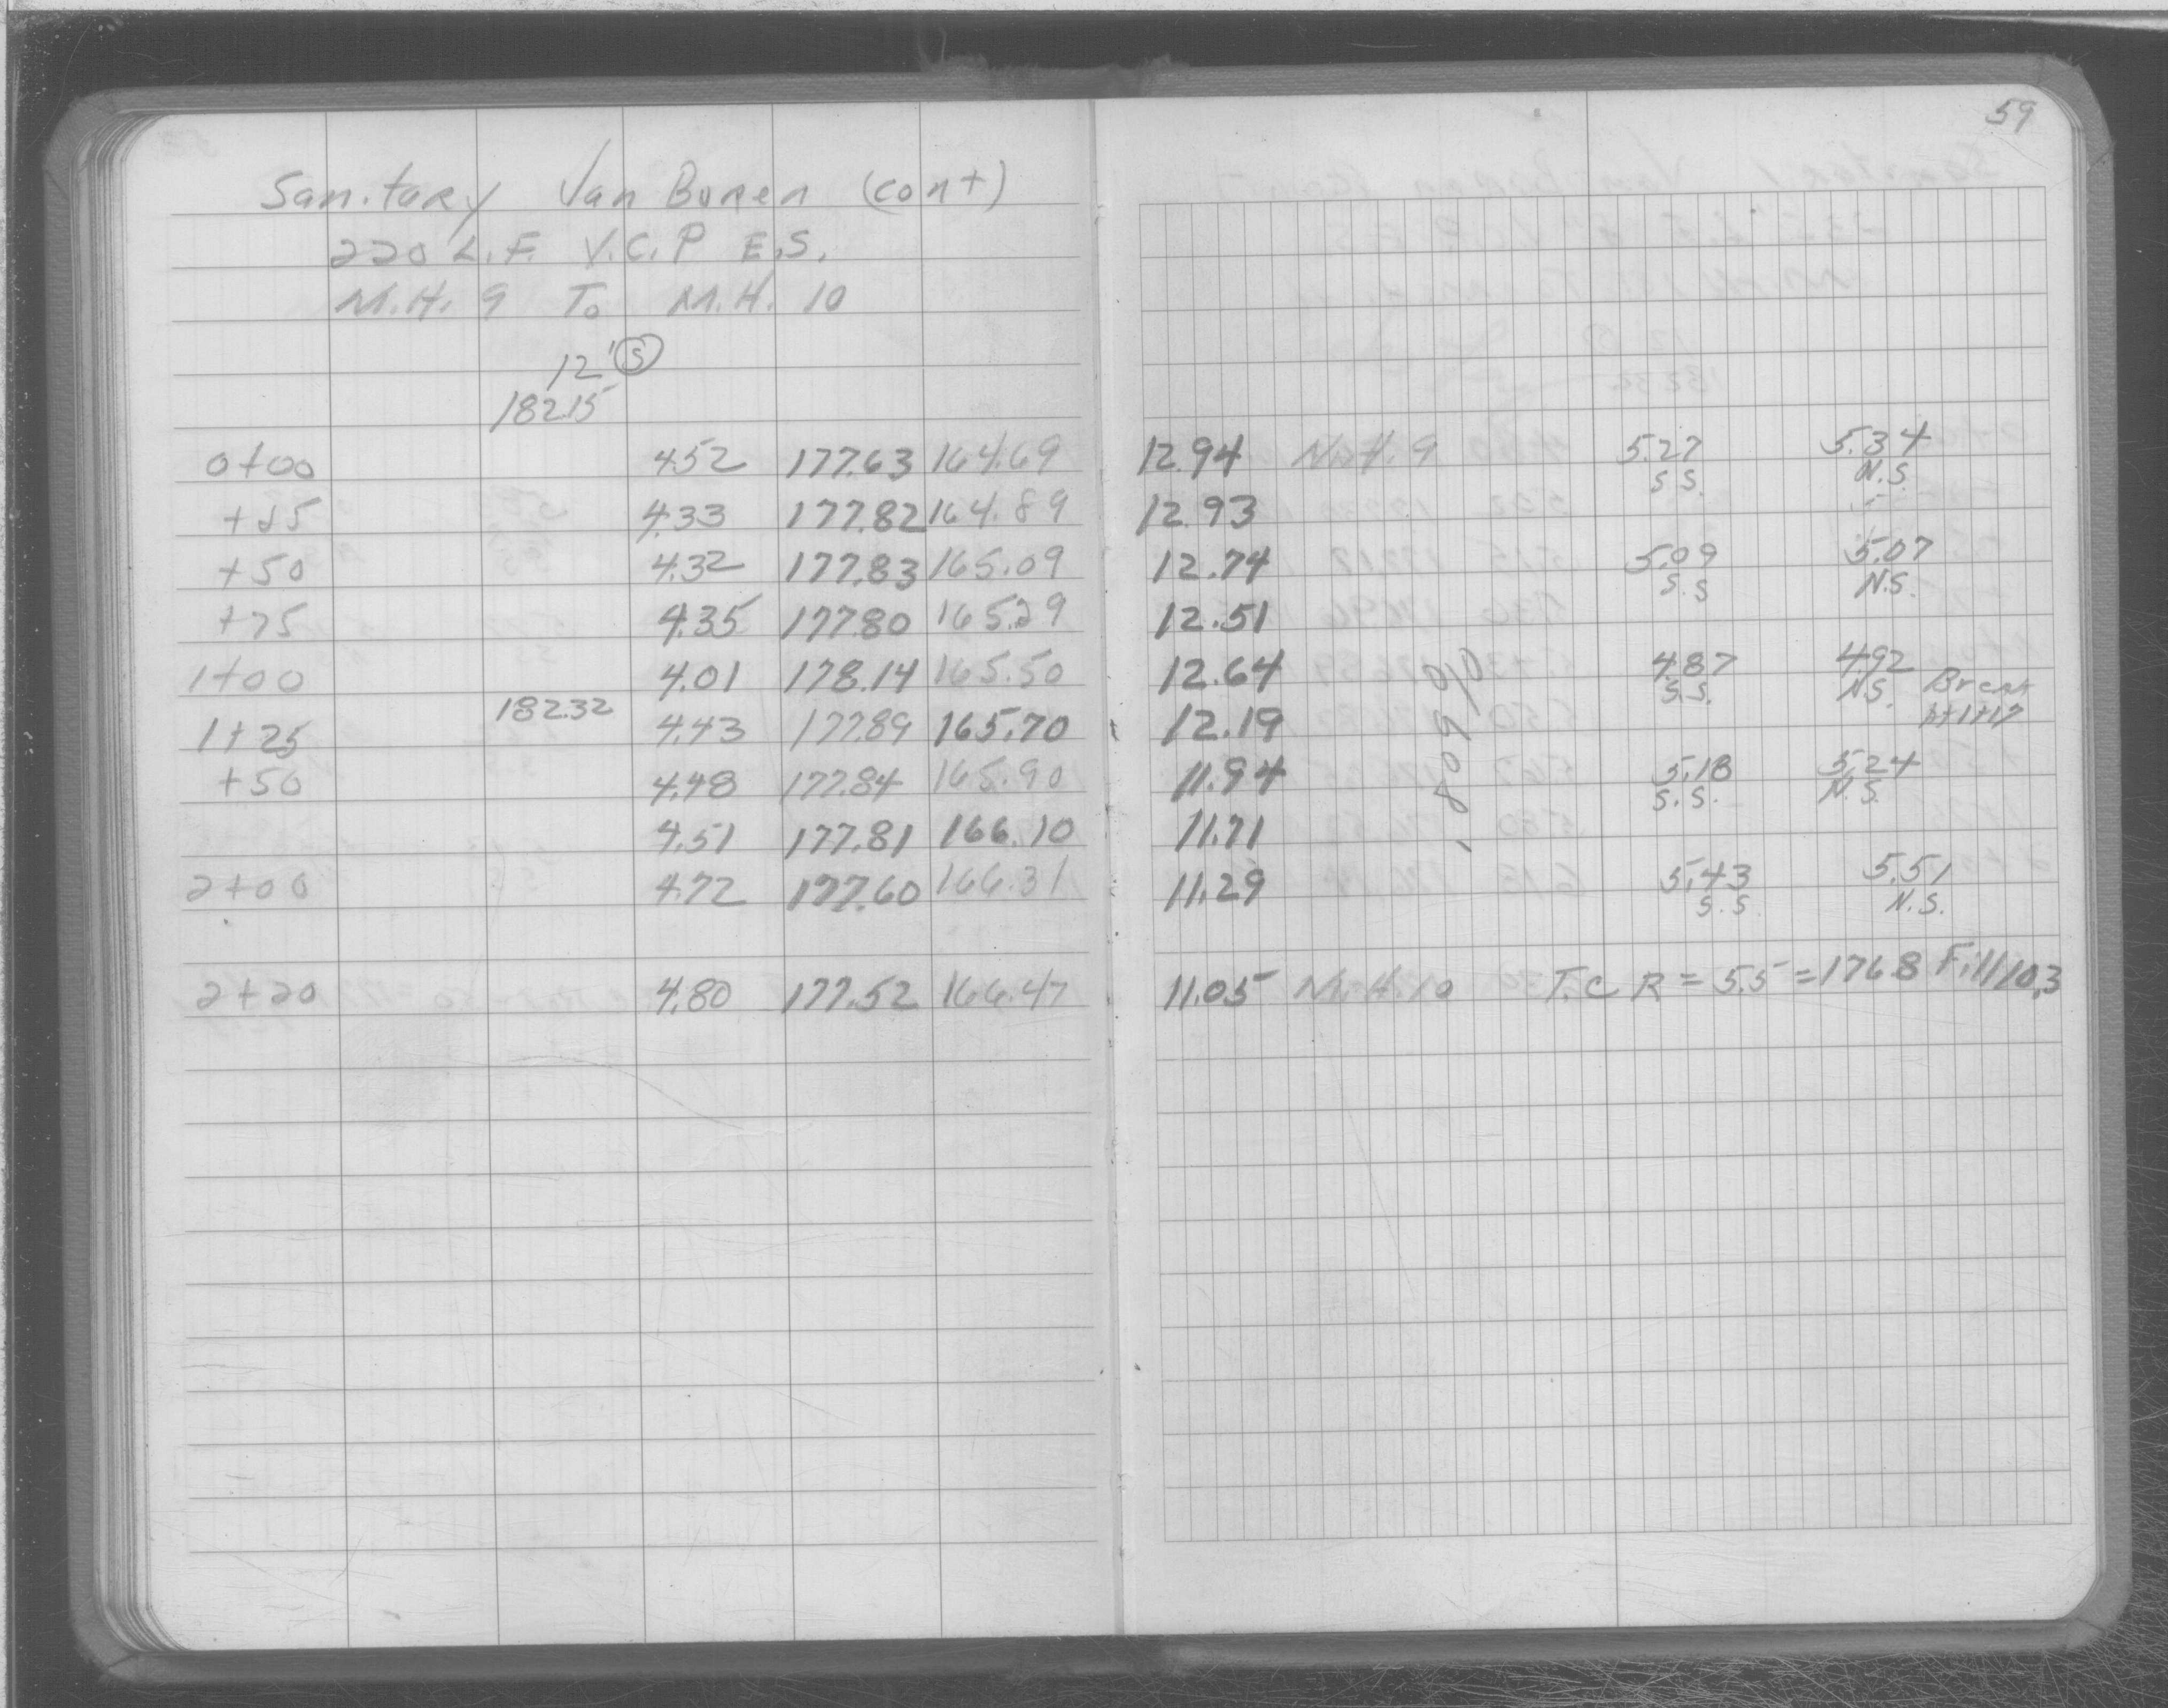 59
Sanitary Van Buren (cont)
220 L.F. V.C.P E.S.
M.H. 9 To M.H. 10
12' S
182.15
0+00 4.52 177.63 164.69 12.94 M.H. 9 5.27 S.S. 5.34 N.S.
+25 4.33 177.82 164.89 12.93
+50 4.32 177.83 165.09 12.74 5.09 S.S 5.07 N.S.
+75 4.35 177.80 165.29 12.51
1+00 4.01 178.14 165.50 12.64 4.87 S.S. 4.92 N.S. Break
At 1+17
182.32
1+25 4.43 177.89 165.70 12.19
.809%
+50 4.48 177.84 165.90 11.94 5.18 S.S. 5.24 N.S.
4.51 177.81 166.10 11.71
2+00 4.72 177.60 166.31 11.29 5.43 S.S 5.51 N.S.
2+20 4.80 177.52 166.47 11.05 M.H. 10 T.C R = 5.5 = 176.8 Fill 10.3